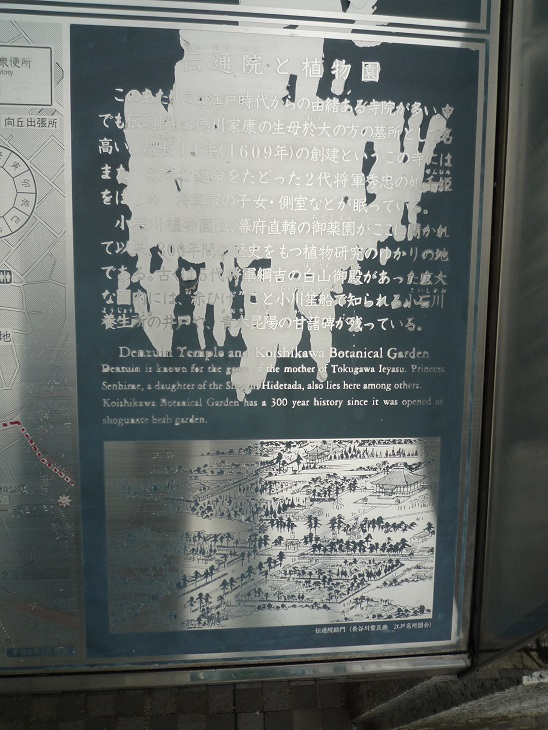 衆便所
向丘出張所
地
伝通院と植物園
このあたりには江戸時代からの由緒ある寺院が多い。中
でも伝通院は徳川家康の生母於大の方の墓所として名
高い。慶長1 年(1609年)の創建というこの寺には
また 運命をたどった2代将軍秀忠の娘千姫
をはじめ 将軍家の子女・側室などが眠っている。
小石川植物園は、幕府直轄の御薬園がここに開かれ
て以来300年間の歴史をもつ植物研究のゆかりの地
である。古くは5代将軍綱吉の白山御殿があった広大
な園内には、“赤ひげ”こと小川笙船で知られる小石川
養生所の井戸や、青木昆陽の甘藷碑が残っている。
Denzuin Temple and Koishikawa Botanical Garden
Denzuin is known for the grave of the mother of Tokugawa Ieyasu. Princess
Senhime, a daughter of the Shogun Hidetada, also lies here among others.
Koishikawa Botanical Garden has a 300 year history since it was opened as
shogunate herb garden.
伝通院総門(長谷川雪旦画 江戸名所図会)